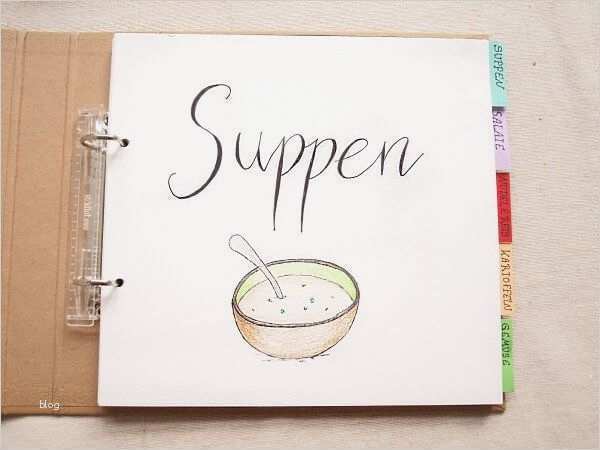 Suppen
SUPPEN
SALATE
KARTOFFELN
GEMÜSE
blog